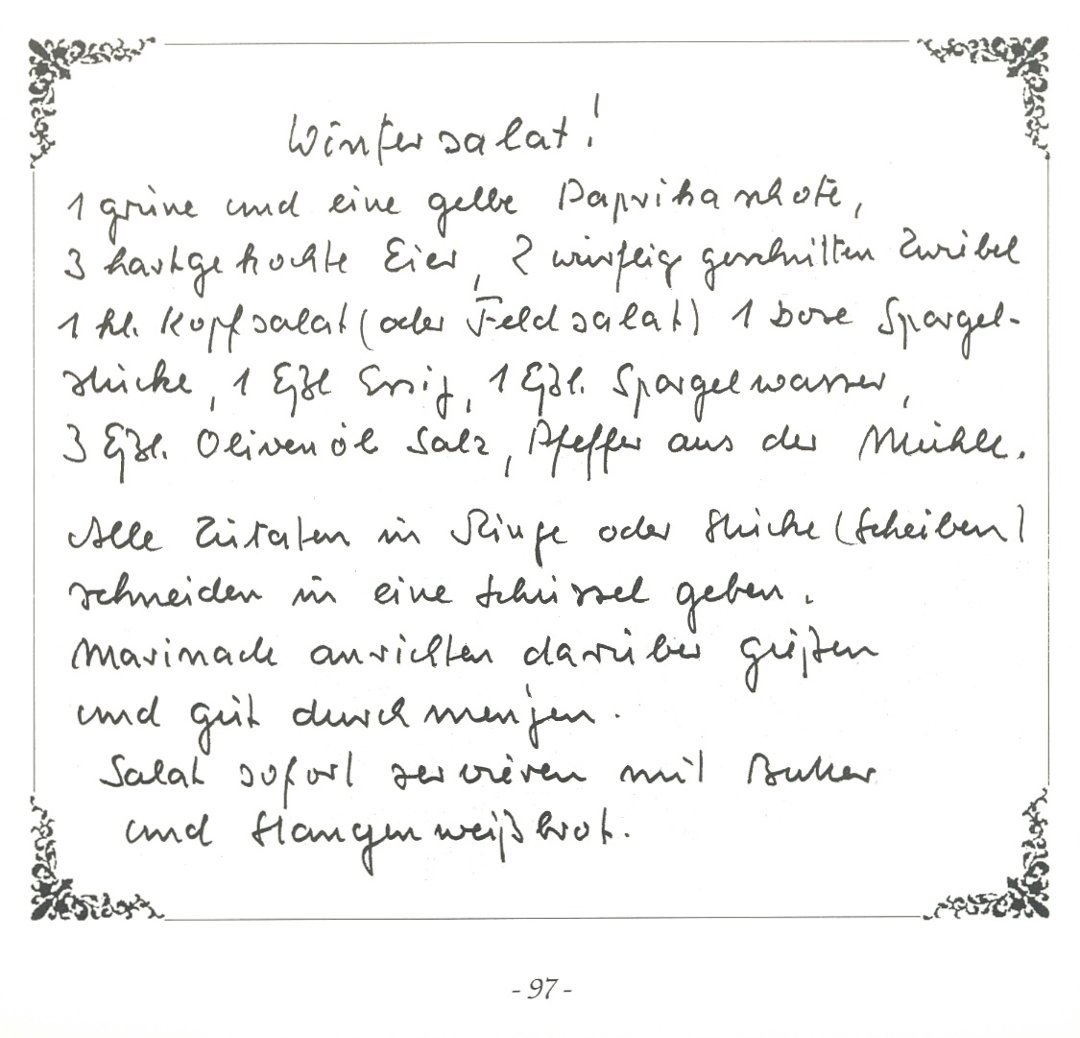 Wintersalat!
1 grüne und eine gelbe Paprikaschote,
3 hartgekochte Eier, 2 würflig geschnitten Zwiebel
1 kl. Kopfsalat (oder Feldsalat) 1 Dose Spargel-
stücke, 1 Eßl Essig, 1 Eßl. Spargelwasser,
3 Eßl. Olivenöl Salz, Pfeffer aus der Mühle.
Alle Zutaten in Ringe oder Stücke (Scheiben)
schneiden in eine Schüssel geben.
Marinade anrichten darüber gießen
und gut durchmengen.
Salat sofort servieren mit Butter
und Stangenweißbrot.
- 97 -